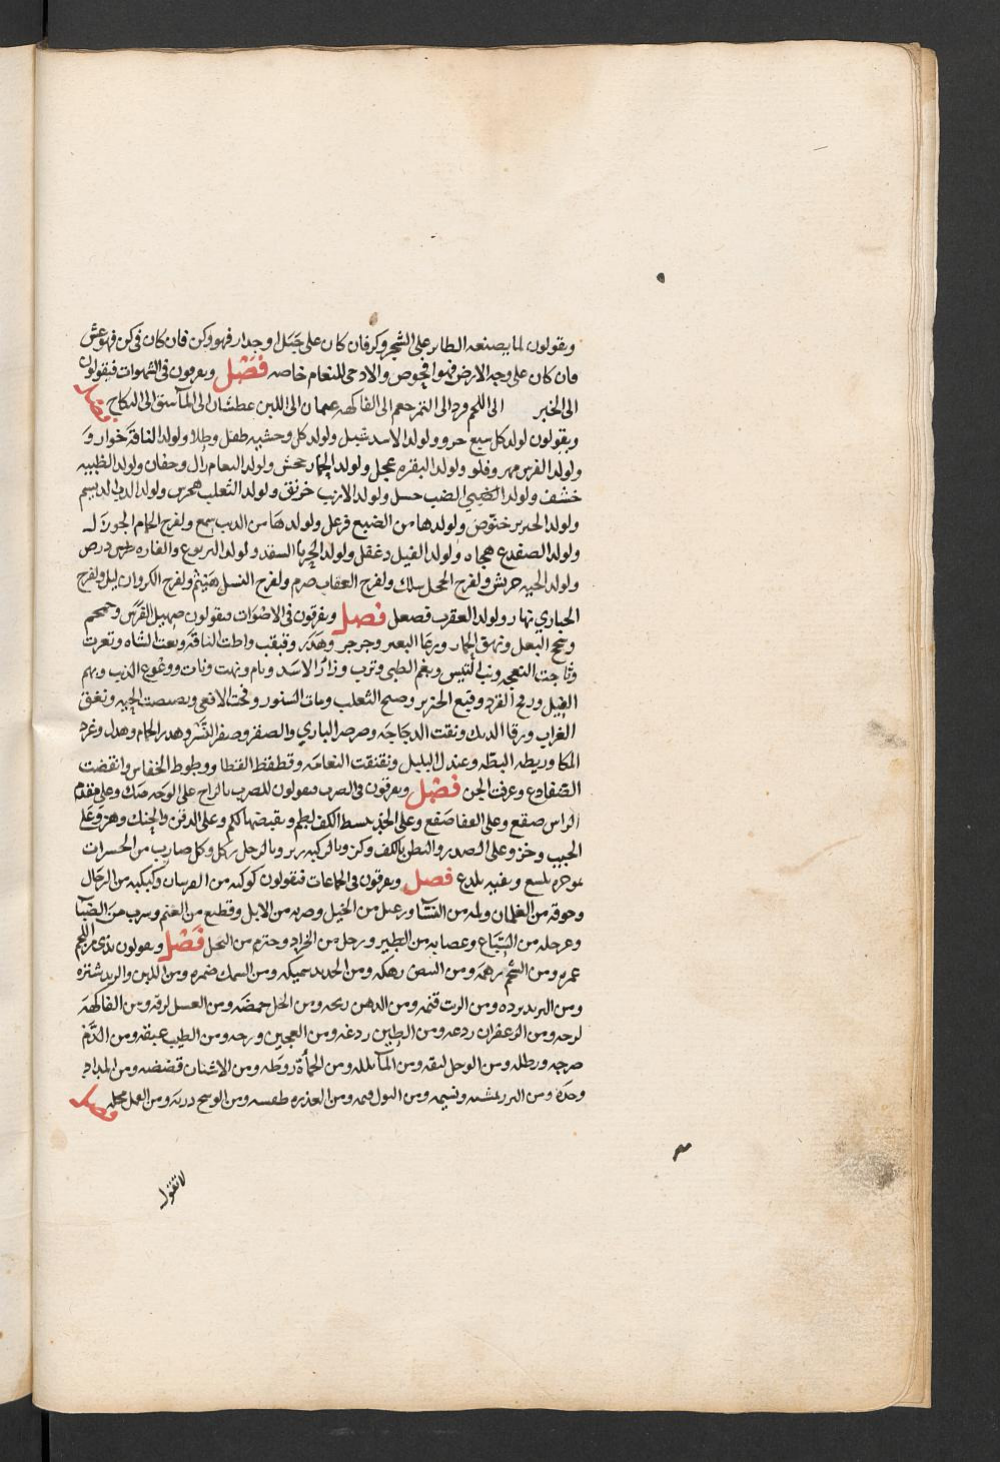 ويقولون لما يصنعه الطاير على الشجر وكر فان كان على جبل او جدار فهو وكن فان كان فى كن فهو عش
فان كان على وجه الارض فهو افحوص والادحى للنعام خاصه فصل ويفرقون فى الشهوات فيقولون
الى الخبز الى اللحم قرم الى التمر جعم الى الفاكهه عيمان الى اللبن عطشان الى الماء شبق الى النكاح فصل
ويقولون لولد كل سبع جرو ولولد الاسد شبل ولولد كل وحشيه طفل وطلا ولولد الناقة حوار و
ولولد الفرس مهر وفلو ولولد البقره عجل ولولد الحمار جحش ولولد النعام رال وحفان ولولد الظبيه
خشف ولولد الضب حسل ولولد الارنب خرنق ولولد الثعلب هجرس ولولد الدب الديسم
ولولد الخنزير خنوص ولولدها من الضبع فرعل ولولدها من الدب سمع ولفرخ الحمام الجوزل
ولولد الضفدع هجاه ولولد الفيل دغفل ولولد الحربا السقد ولولد اليربوع والفاره درص
ولولد الحيه حربش ولفرخ الحجل سلك ولفرخ العقاب ضرم ولفرخ النسر هيثم ولفرخ الكروان ليل ولفرخ
الحبارى نهار ولولد العقرب فصعل فصل ويفرقون فى الاصوات فيقولون صهيل الفرس وحمحم
وشحج البغل ونهق الحمار ورغا البعير وجرجر وهدر وقبقب واطت الناقة وثغت الشاه ويعرت
وثاجت النعجه ونب التيس وبغم الظبى ونزب وزأر الاسد ونام ونهت ونات ووعوع الذيب ونهم
الفيل وزقح القرد وقبع الخنزير وضبح الثعلب ومات السنور وفحت الافعى ونضنضت الحيه ونغق
الغراب وزقا الديك ونقت الدجاجه وصرصر البازى والصقر وصفر النسر وهدر الحمام وهدل وغرد
المكا وبطبطه البطه وعندل البلبل ونقنقت النعامه وقطقط القطا ووطوط الخفاش وانقضت
الضفادع وعزفت الجن فصل ويفرقون فى الضرب فيقولون للضرب بالراح على الوجه صك وعلى مقدم
الراس صقع وعلى القفا صفع وعلى الخد ببسط الكف لطم وبقبضها لكم وعلى الذقن والحنك وهز وعلى
الجنب وخز وعلى الصدر والبطن بالكف وكز وبالركبه زبن وبالرجل ركل وكل ضارب من الحشرات
بموخره يلسع وبفيه يلدغ فصل ويفرقون فى الجماعات فيقولون كوكبه من الفرسان وكبكبه من الرجال
وجوقه من الغلمان ولمه من النسا ورعيل من الخيل وصرمه من الابل وقطيع من الغنم وسرب من الظبا
وعرجله من السباع وعصابه من الطير ورجل من الجراد وخشرم من النحل فصل ويقولون يدى من اللحم
غمره ومن الشحم زهمه ومن البيض زهكه ومن الحديد سهكه ومن السمك ضمره ومن اللبن والزبد شتره
ومن البرد برده ومن الزيت قنمه ومن الدهن زنخه ومن الخل حمضه ومن العسل لزقه ومن الفاكهه
لزجه ومن الزعفران ردعه ومن الطين ردغه ومن العجين ورخه ومن الطيب عبقه ومن الدم
ضرجه ومن الوحل لثقه ومن الماء بلله ومن الحمأة ومن الاشنان قضضه ومن المداد
وحده ومن البول ومن العذره طفسه ومن الوسخ درنه ومن العمل مجله فصل
لا تقول